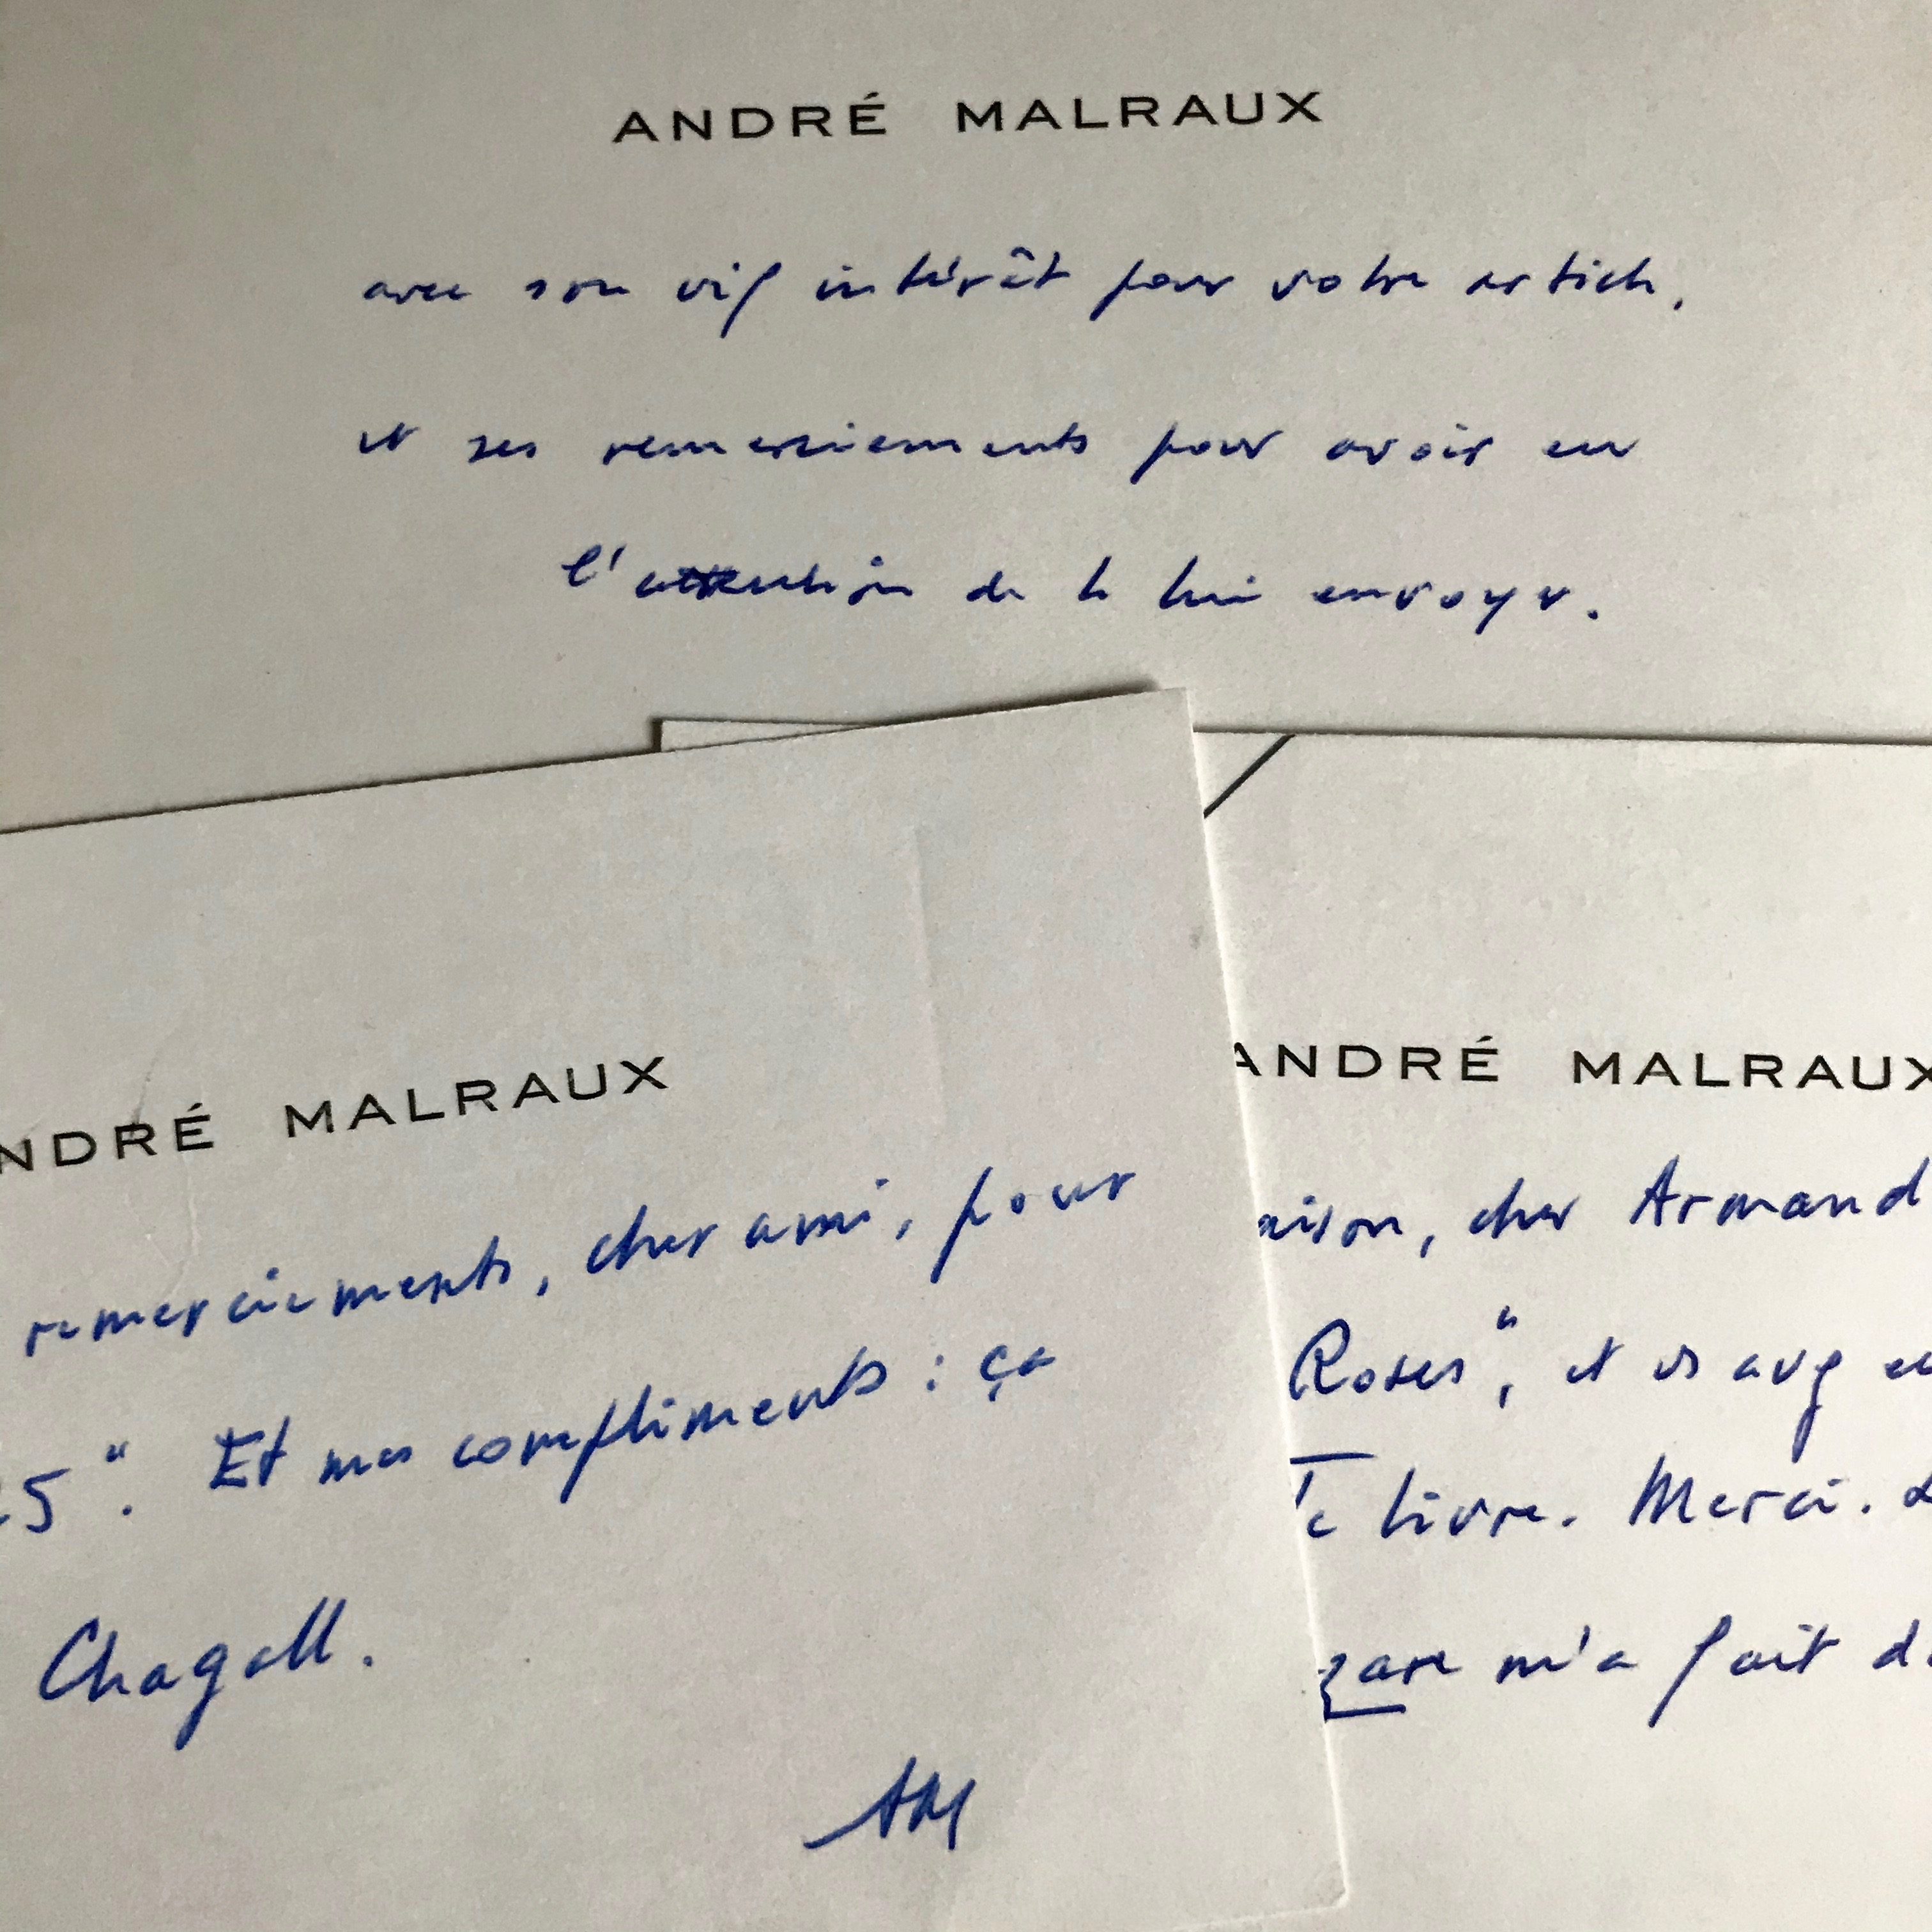 ANDRÉ MALRAUX
avec son vif intérêt pour votre article,
et ses remerciements pour avoir eu
l'attention de le lui envoyer.
NDRÉ MALRAUX
remerciements, cher ami, pour
5". Et mes compliments : ça
Chagall.
AM
ANDRÉ MALRAUX
aison, cher Armand
Roses", et vs avez eu
livre. Merci.
zare m'a fait d